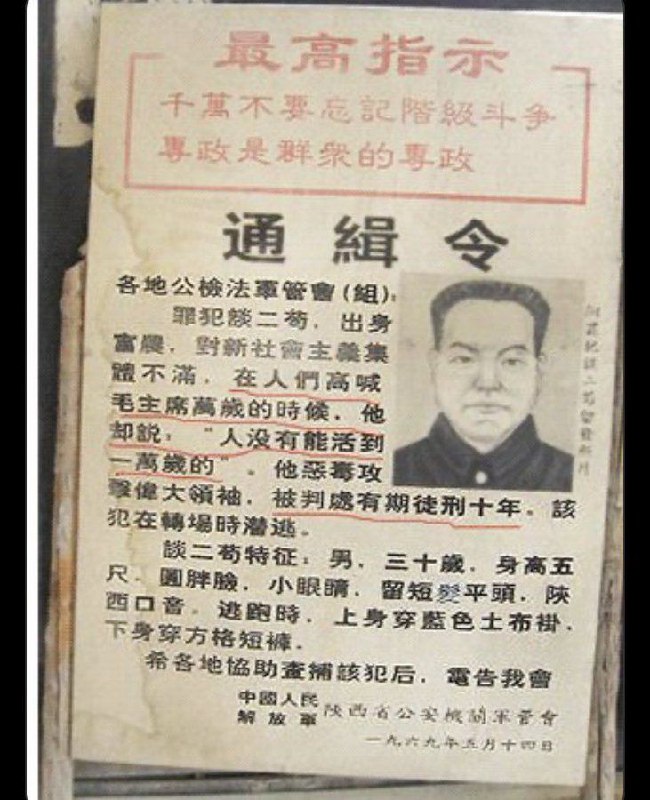 最高指示
千萬不要忘記階級斗争
專政是群衆的專政
通緝令
各地公檢法軍管會(組)：
罪犯談二苟，出身
富農，對新社會主義集
體不滿，在人們高喊
毛主席萬歲的時候，他
却説："人没有能活到
一萬歲的"。他惡毒攻
擊偉大領袖，被判處有期徒刑十年。該
犯在轉場時潜逃。
談二苟特征：男，三十歲，身高五
尺，圓胖臉，小眼睛，留短髮平頭，陝
西口音。逃跑時，上身穿藍色土布褂，
下身穿方格短褲。
希各地協助查捕該犯后，電告我會
中國人民
解放軍
陝西省公安機關軍管會
一九六九年五月十四日